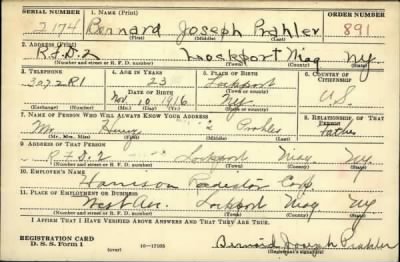 SERIAL NUMBER 1. NAME (Print) ORDER NUMBER
2174 Bernard Joseph Prahler 891
(First) (Middle) (Last)
2. ADDRESS (Print)
R.F.D-2 Lockport Niag Ny.
(Number and street or R. F. D. number) (Town) (County) (State)
3. TELEPHONE 4. AGE IN YEARS 5. PLACE OF BIRTH 6. COUNTRY OF CITIZENSHIP
3072R1 23 Lockport
DATE OF BIRTH (Town or county)
Nov. 10, 1916 Ny. U.S.
(Exchange) (Number) (Mo.) (Day) (Yr.) (State or country)
7. NAME OF PERSON WHO WILL ALWAYS KNOW YOUR ADDRESS 8. RELATIONSHIP OF THAT PERSON
Mr. Henry Prahler Father
(Mr., Mrs., Miss) (First) (Middle) (Last)
9. ADDRESS OF THAT PERSON
R.F.D-2 Lockport Niag Ny
(Number and street or R. F. D. number) (Town) (County) (State)
10. EMPLOYER'S NAME
Harrison Radiator Corp.
11. PLACE OF EMPLOYMENT OR BUSINESS
West Ave. Lockport Niag Ny
(Number and street or R. F. D. number) (Town) (County) (State)
I AFFIRM THAT I HAVE VERIFIED ABOVE ANSWERS AND THAT THEY ARE TRUE.
REGISTRATION CARD
D. S. S. Form 1 (over) 16—17105 Bernard Joseph Prahler
(Registrant's signature)